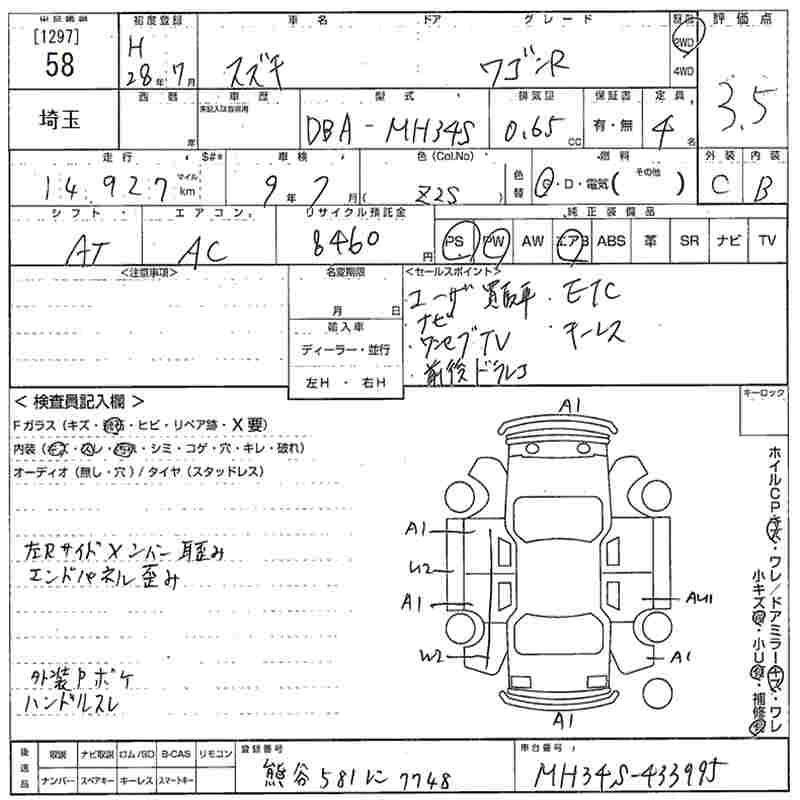 出品番号 初度登録 車名 ドア グレード 駆動 評価点
[1297] 58 H 28年7月 スズキ ワゴンR 2WD 4WD 3.5
埼玉 西暦 年 車歴 未記入は自家用 型式 DBA-MH34S 排気量 0.65 cc 保証書 有・無 定員 4名
走行 $#* 車検 色(Col.No) 色替 燃料 外装 内装
14,927 マイル km 9年7月 ( Z2S ) G・D・電気( その他 ) C B
シフト エアコン リサイクル預託金 純正装備品
AT AC 8460円 PS PW AW エアB ABS 革 SR ナビ TV
<注意事項> 名変期限 <セールスポイント>
月 日
輸入車
ディーラー・並行
左H・右H
・ユーザー買取車 ・ETC
・ナビ
・ワンセグTV ・キーレス
・前後ドラレコ
<検査員記入欄> キーロック
Fガラス(キズ・飛石・ヒビ・リペア跡・X要)
内装(キズ・スレ・汚れ・シミ・コゲ・穴・キレ・破れ)
オーディオ(無し・穴)/タイヤ(スタッドレス)
左Rサイドメンバー 歪み
エンドパネル歪み
外装Pボケ
ハンドルスレ
A1
A1
U2
A1
W2
AU1
A1
A1
ホイルCPキズ・ワレ/ドアミラーキズ・ワレ
小キズ有・小U有・補修有
後送品 取説 ナビ取説 ロム/SD B-CAS リモコン 登録番号 車台番号
ナンバー スペアキー キーレス スマートキー 熊谷 581 に 7748 MH34S-433995